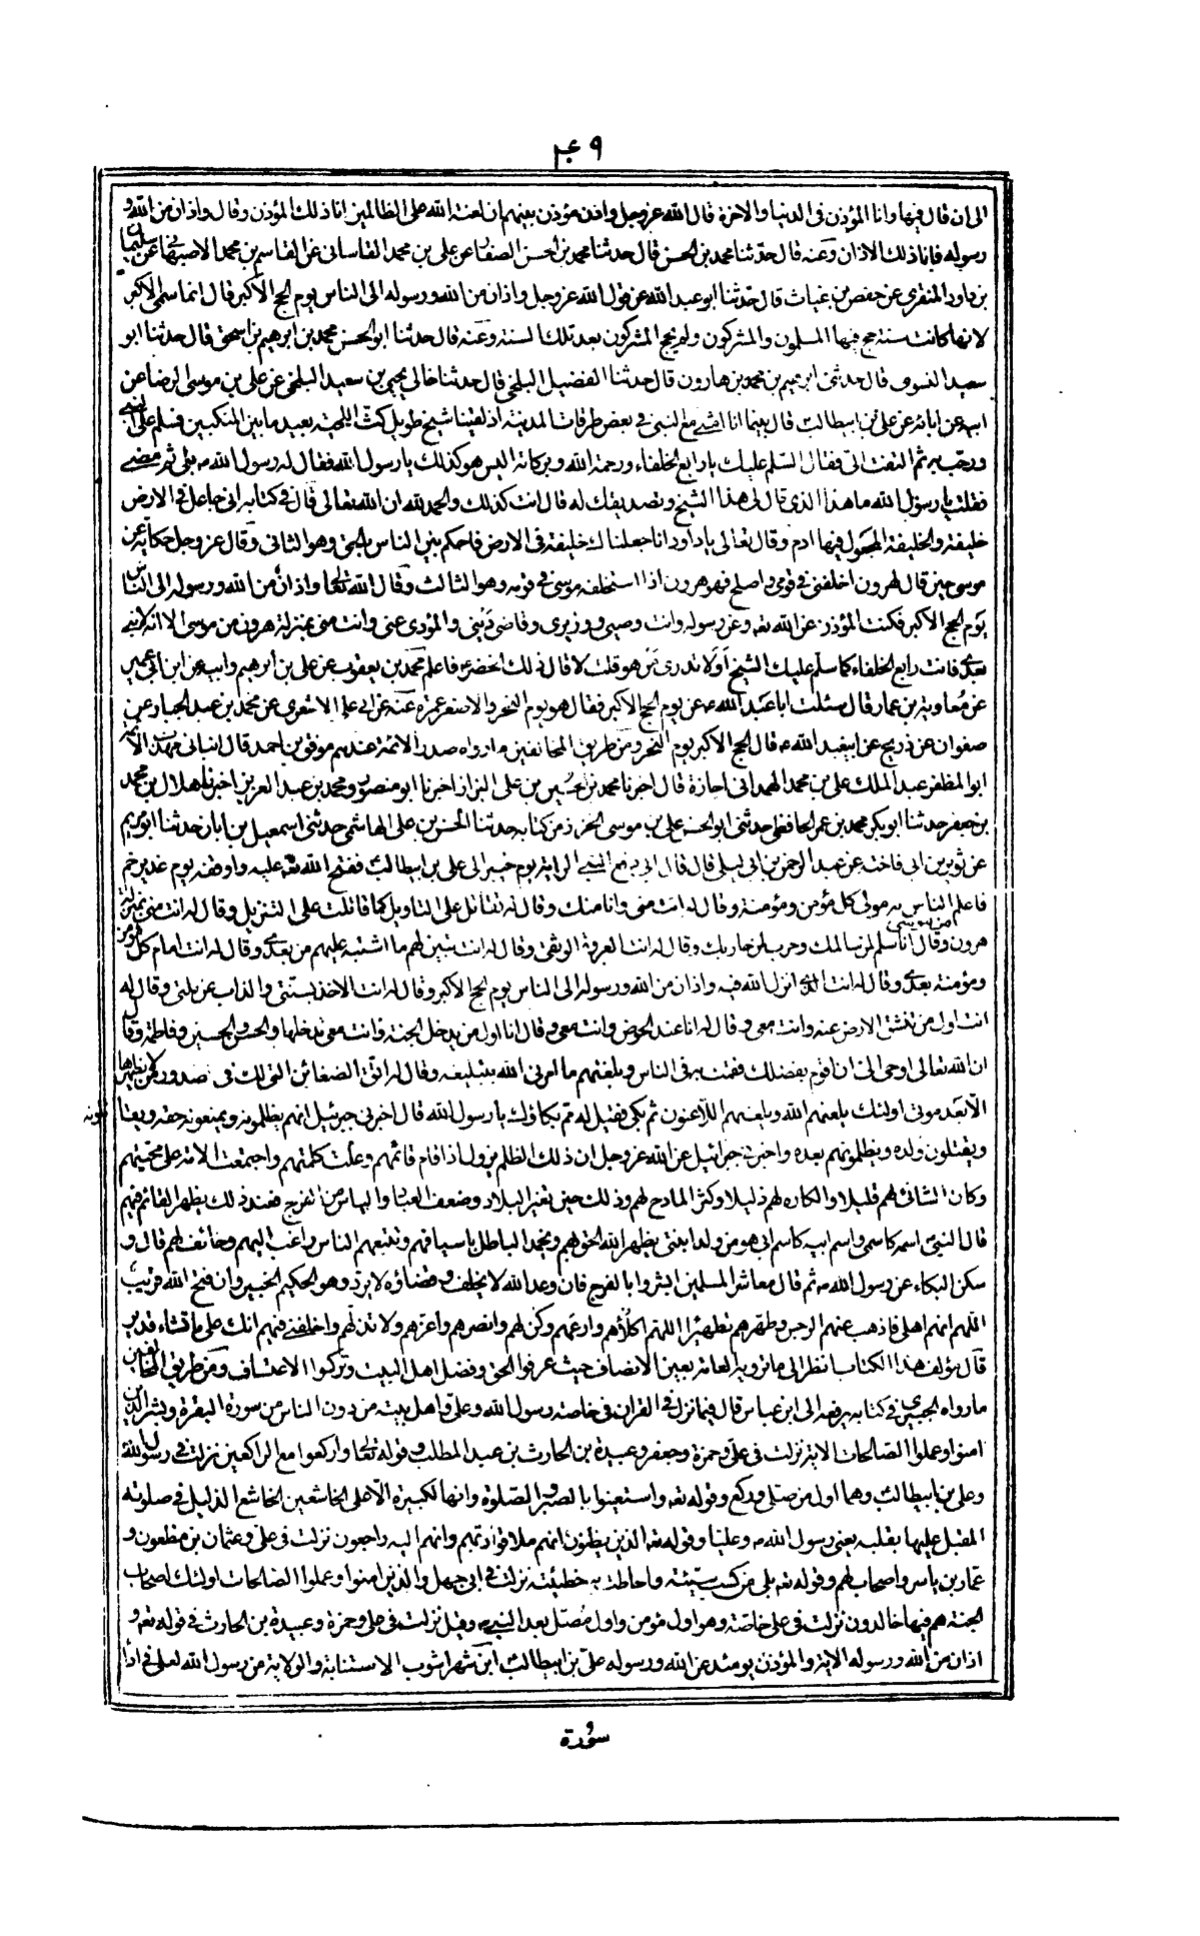 ٩ ع‍
الى ان قال فيها وانا المؤذن فى الدنيا والاخرة قال الله عز وجل واذن مؤذن بينهم ان لعنة الله على الظالمين انا ذلك المؤذن وقال واذان من الله و
رسوله فانا ذلك الاذان وعنه قال حدّثنا محمد بن الحسن قال حدثنا محمد بن الحسن الصفار عن على بن محمد القاسانى عن القاسم بن محمد الاصبهانى عن سليمان
بن داود المنقرى عن حفص بن غياث قال حدثنا ابو عبد الله عن قول الله عز وجل واذان من الله ورسوله الى الناس يوم الحج الأكبر قال انما سمى الأكبر
لانها كانت سنة حج فيها المسلمون والمشركون ولم يحج المشركون بعد تلك السنة وعنه قال حدثنا ابو الحسن محمد بن ابرهيم بن اسحق قال حدثنا ابو
سعيد النسوى قال حدثنى ابرهيم بن محمد بن هارون قال حدثنا الفضيل البلخى قال حدثنا خالى يحيى بن سعيد البلخى عن على بن موسى الرضا عن
ابيه عن ابائه عن على بن ابيطالب قال بينما انا امشى مع النبى فى بعض طرقات المدينة اذ لقينا شيخ طويل كث اللحية بعيد ما بين المنكبين فسلم على النبى
ورحب به ثم التفت الى فقال السّلم عليك يا رابع الخلفاء ورحمة الله وبركاته اليس هو كذلك يا رسول الله فقال له رسول الله ص بلى ثم مضى
فقلت يا رسول الله ما هذا الذى قال لى هذا الشيخ وتصديقك له قال انت كذلك والحمد لله ان الله تعالى قال فى كتابه انى جاعل فى الارض
خليفة والخليفة المجعول فيها ادم وقال تعالى يا داود انا جعلناك خليفة فى الارض فاحكم بين الناس بالحق وهو الثانى وقال عز وجل حكاية عن
موسى حين قال لهرون اخلفنى فى قومى واصلح فهو هرون اذا استخلفه موسى فى قومه وهو الثالث وقال الله تعالى واذان من الله ورسوله الى الناس
يوم الحج الاكبر فكنت المؤذن عن الله تعه وعن رسوله وانت وصيى ووزيرى وقاضى دينى والمؤدى عنى وانت منى بمنزلة هرون من موسى الا انه لا نبى
بعدى فانت رابع الخلفاء كما سلم عليك الشيخ اولا تدرى من هو قلت لا قال ذلك الخضر ع فاعلم محمد بن يعقوب عن على بن ابرهيم وابيه عن ابن ابى عمير
عن معاوية بن عمار قال سئلت ابا عبد الله ع عن يوم الحج الاكبر فقال هو يوم النحر والاصغر عمرة عنه عن ابى على الاشعرى عن محمد بن عبد الجبار عن
صفوان عن ذريح عن ابيعبد الله ع قال الحج الاكبر يوم النحر ومن طريق المخالفين ما رواه صدر الائمة عندهم موفق بن احمد قال انبانى مهذب الائمة
ابو المظفر عبد الملك على بن محمد الهمدانى اجازة قال اخبرنا محمد بن الحسين بن على البزاز اخبرنا ابو منصور ومحمد بن عبد العزيز اخبرنا هلال بن محمد
بن جعفر حدثنا ابو بكر محمد بن عمر الحافظ حدثنى ابو الحسن على بن موسى الخزاز من كتابه حدثنا الحسن بن على الهاشمى حدثنى اسمعيل بن ابان حدثنا ابو مريم
عن ثوير بن ابى فاخته عن عبد الرحمن بن ابى ليلى قال قال ابى دفع النبى الراية يوم خيبر الى على بن ابيطالب ففتح الله تعه عليه واوقفه يوم غدير خم
فاعلم الناس به مولى كل مؤمن ومؤمنة وقال له انت منى وانا منك وقال له تقاتل على التاويل كما قاتلت على التنزيل وقال له انت منى بمنزلة
هرون من موسى وقال انا سلم لمن سالمك وحرب لمن حاربك وقال له انت العروة الوثقى وقال له انت تبين لهم ما اشتبه عليهم من بعدى وقال له انت امام كل مؤمن
ومؤمنة بعدى وقال له انت الذى انزل الله فيه واذان من الله ورسوله الى الناس يوم الحج الاكبر وقال له انت الاخذ بسنتى والذاب عن ملتى وقال له
انت اول من تنشق الارض عنه وانت معى وقال له انا عند الحوض وانت معى وقال انا اول من يدخل الجنة وانت معى تدخلها والحسن والحسين وفاطمة وقال
ان الله تعالى اوحى الى ان اقوم بفضلك فقمت به فى الناس وبلغتهم ما امرنى الله بتبليغه وقال له اتق الضغائن التى لك فى صدور من لا يظهرها
الا بعد موتى اولئك يلعنهم الله ويلعنهم اللاعنون ثم بكى فقيل له مم بكاؤك يا رسول الله قال اخبرنى جبرئيل انهم يظلمونه ويمنعونه حقه ويقاتلونه
ويقتلون ولده ويظلمونهم بعده واخبرنى جبرائيل عن الله عز وجل ان ذلك الظلم يزول اذا قام قائمهم وعلت كلمتهم واجتمعت الامة على محبتهم
وكان الشانئ لهم قليلا والكاره لهم ذليلا وكثر المادح لهم وذلك حين تغير البلاد وضعف العباد والياس من الفرج فعند ذلك يظهر القائم فيهم
قال النبى اسمه كاسمى واسم ابيه كاسم ابى هو من ولد ابنتى يظهر الله الحق بهم ويخمد الباطل باسيافهم وتتبعهم الناس راغب اليهم وخائف لهم قال و
سكن البكاء عن رسول الله ص ثم قال معاشر المسلمين ابشروا بالفرج فان وعد الله لا يخلف وقضاؤه لا يرد وهو الحكيم الخبير وان فتح الله قريب
اللهم انهم اهلى فاذهب عنهم الرجس وطهرهم تطهيرا اللهم اكلأهم وارعهم وكن لهم وانصرهم واعزهم ولا تذلهم واخلفنى فيهم انك على ما تشاء قدير
قال مؤلف هذا الكتاب انظر الى ما ترويه العامة بعين الانصاف حيث عرفوا الحق وفضل اهل البيت وتركوا الاعتساف ومن طريق المخالفين
ما رواه الحبرى فى كتابه يرفعه الى ابن عباس قال فيما نزل فى القران فى خاصة رسول الله وعلى واهل بيته من دون الناس من سورة البقرة وبشر الذين
امنوا وعملوا الصالحات الاية نزلت فى على وحمزة وجعفر وعبيدة بن الحارث بن عبد المطلب وقوله تعالى واركعوا مع الراكعين نزلت فى رسول الله
وعلى بن ابيطالب وهما اول من صلى وركع وقوله تعه واستعينوا بالصبر والصلوة وانها لكبيرة الا على الخاشعين الخاشع الذليل فى صلوته
المقبل عليها بقلبه يعنى رسول الله ص وعليا وقوله تعه الذين يظنون انهم ملاقوا ربهم وانهم اليه راجعون نزلت فى على وعثمان بن مظعون و
عمار بن ياسر واصحاب لهم وقوله تعه بلى من كسب سيئة واحاطت به خطيئته نزلت فى ابى جهل والذين امنوا وعملوا الصالحات اولئك اصحاب
الجنة هم فيها خالدون نزلت فى على خاصّة وهو اول مؤمن واول مصل بعد النبى ص وقيل نزلت فى على وحمزة وعبيدة بن الحارث فى قوله تعه و
اذان من الله ورسوله الاية والمؤذن يومئذ عن الله ورسوله على بن ابيطالب ابن شهراشوب الاستنابة والولاية من رسول الله لعلى فى اداء
سورة